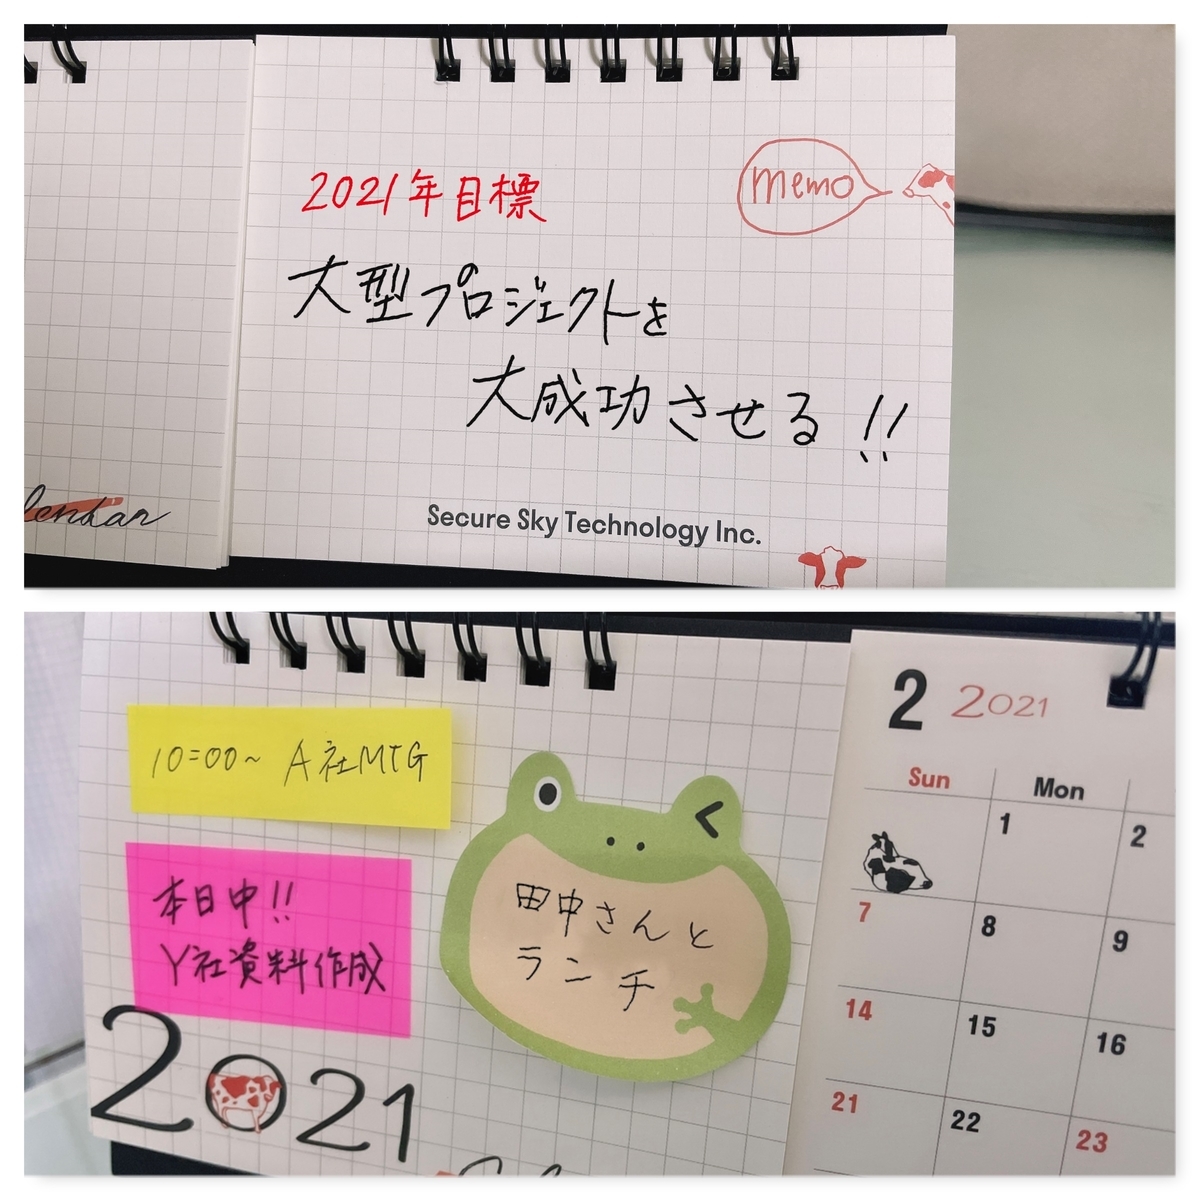 2021年目標
memo
大型プロジェクトを
大成功させる!!
Secure Sky Technology Inc.
10:00~ A社MTG
本日中!!
Y社資料作成
田中さんと
ランチ
2021
2 2021
Sun Mon
1 2
7 8 9
14 15 16
21 22 23